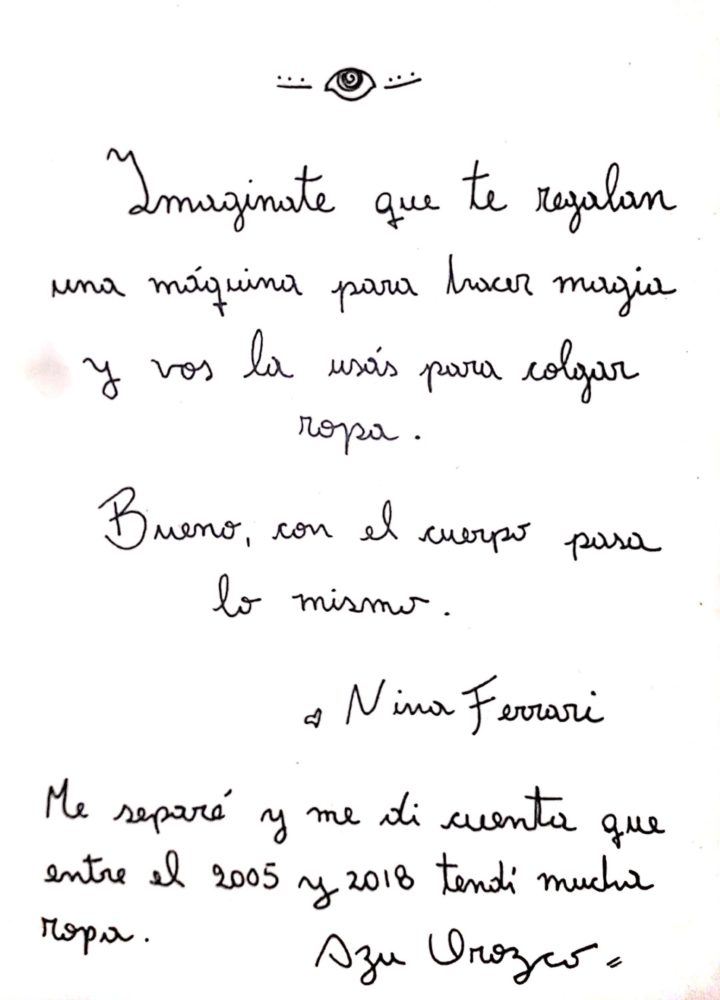 Imaginate que te regalan
una máquina para hacer magia
y vos la usás para colgar
ropa.
Bueno, con el cuerpo pasa
lo mismo.
Nina Ferrari
Me separé y me di cuenta que
entre el 2005 y 2018 tendí mucha
ropa.
Azu Orozco